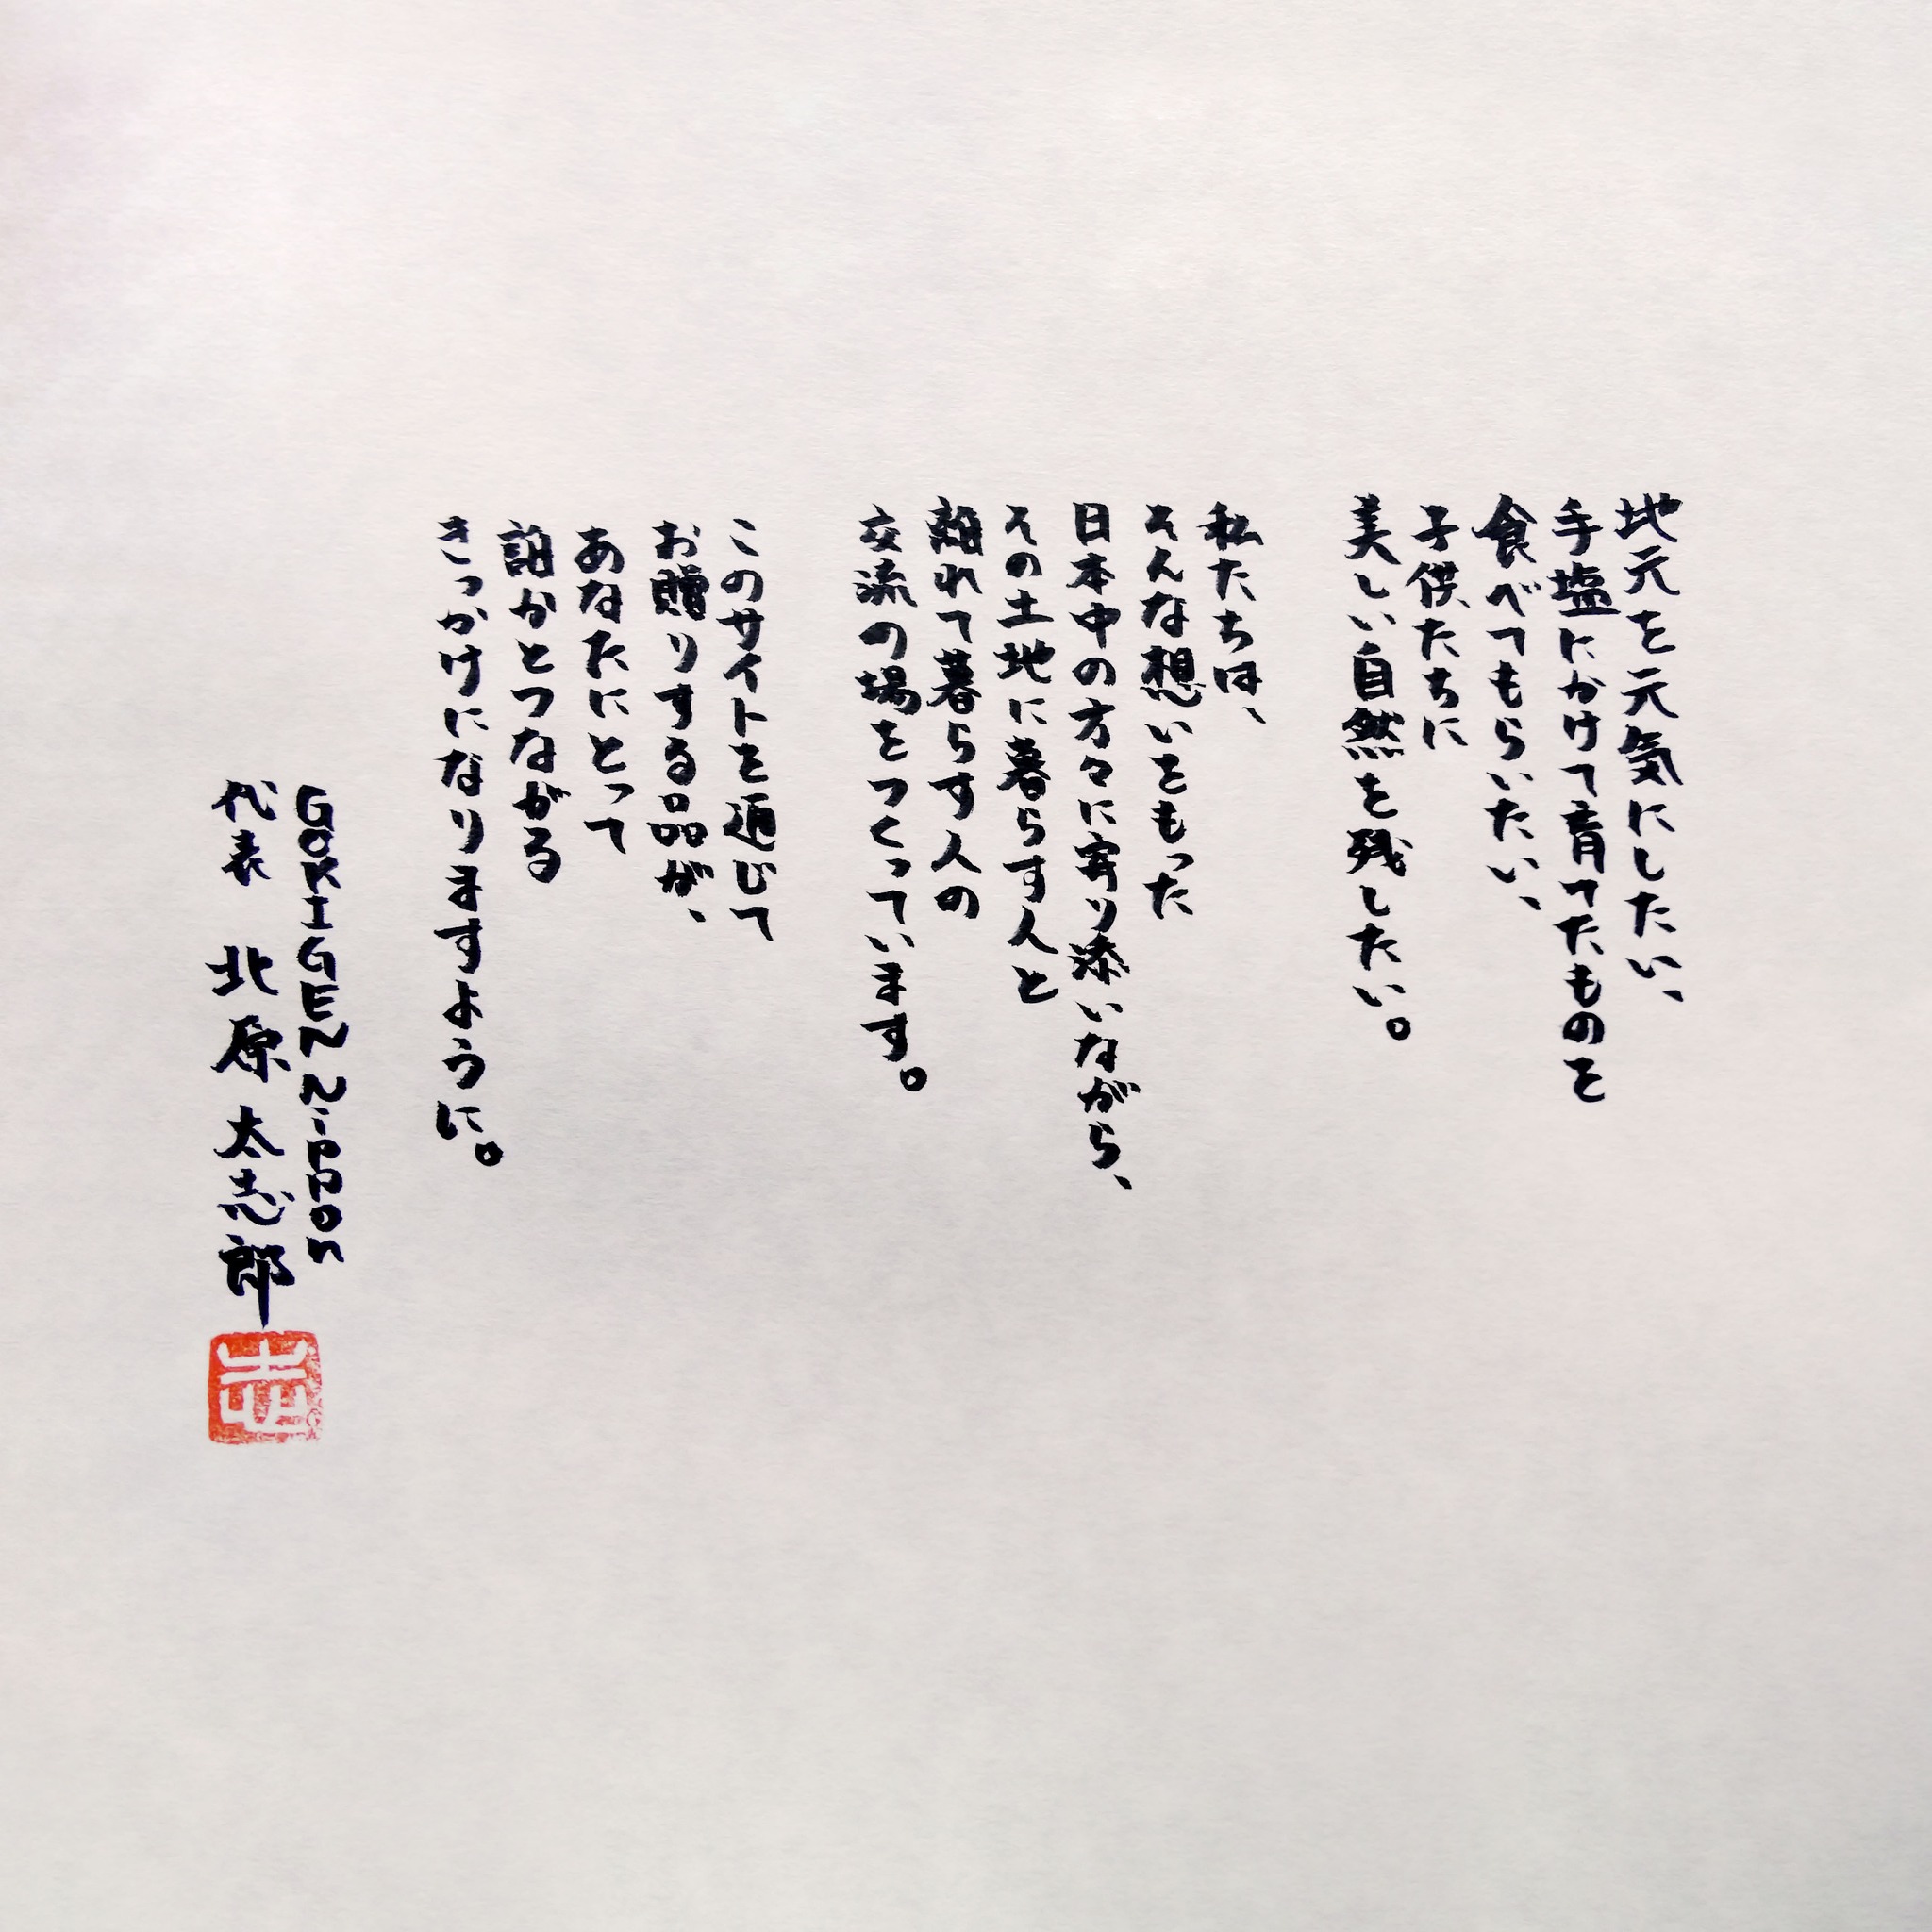 地元を元気にしたい、
手塩にかけて育てたものを
食べてもらいたい、
子供たちに
美しい自然を残したい。
私たちは、
そんな想いをもった
日本中の方々に寄り添いながら、
その土地に暮らす人と
離れて暮らす人の
交流の場をつくっています。
このサイトを通じて
お贈りする品が、
あなたにとって
誰かとつながる
きっかけになりますように。
GOKIGEN Nippon
代表 北原太志郎
志